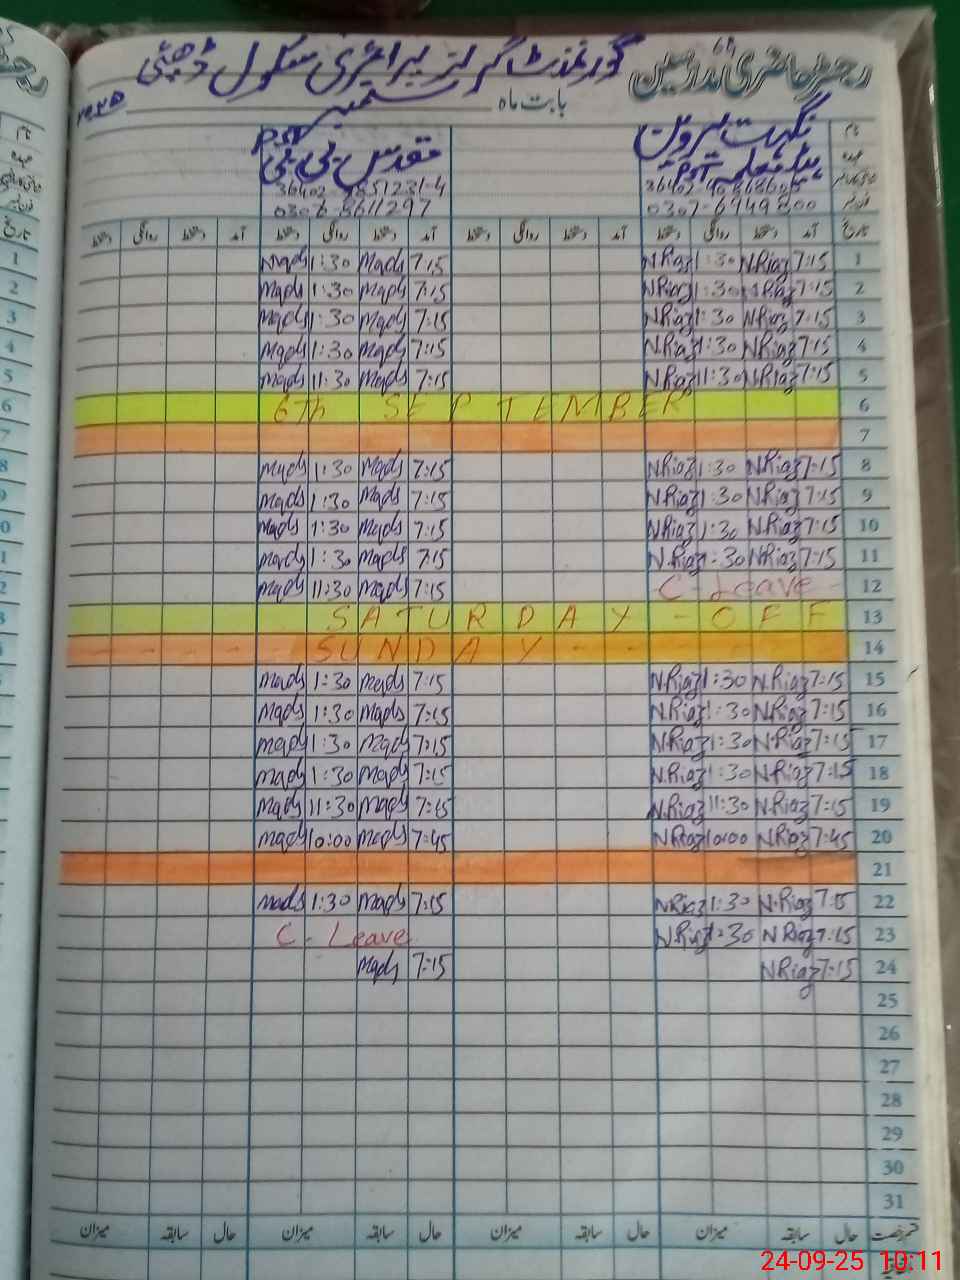 رجسٹر حاضری مدرسین گورنمنٹ گرلز پرائمری سکول
بابت ماہ ستمبر
نام نگہت پروین PST مقدس بی بی
عہدہ ہیڈ معلمہ PST
0307-6949800 0306-8611297
تاریخ آمد دستخط روانگی دستخط آمد دستخط روانگی دستخط آمد دستخط روانگی دستخط آمد دستخط روانگی دستخط
1 7:15 N.Riaz 1:30 N.Riaz 7:15 Mqds 1:30 Mqds
2 7:15 N.Riaz 1:30 N.Riaz 7:15 Mqds 1:30 Mqds
3 7:15 N.Riaz 1:30 N.Riaz 7:15 Mqds 1:30 Mqds
4 7:15 N.Riaz 1:30 N.Riaz 7:15 Mqds 1:30 Mqds
5 7:15 N.Riaz 11:30 N.Riaz 7:15 Mqds 11:30 Mqds
6 6Th SEPTEMBER
7
8 7:15 N.Riaz 1:30 N.Riaz 7:15 Mqds 1:30 Mqds
9 7:15 N.Riaz 1:30 N.Riaz 7:15 Mqds 1:30 Mqds
10 7:15 N.Riaz 1:30 N.Riaz 7:15 Mqds 1:30 Mqds
11 7:15 N.Riaz 1:30 N.Riaz 7:15 Mqds 1:30 Mqds
12 C-Leave- 7:15 Mqds 11:30 Mqds
13 SATURDAY - OFF
14 - - - - - SUNDAY - - - -
15 7:15 N.Riaz 1:30 N.Riaz 7:15 Mqds 1:30 Mqds
16 7:15 N.Riaz 1:30 N.Riaz 7:15 Mqds 1:30 Mqds
17 7:15 N.Riaz 1:30 N.Riaz 7:15 Mqds 1:30 Mqds
18 7:15 N.Riaz 1:30 N.Riaz 7:15 Mqds 1:30 Mqds
19 7:15 N.Riaz 11:30 N.Riaz 7:15 Mqds 11:30 Mqds
20 7:45 N.Riaz 10:00 N.Riaz 7:45 Mqds 10:00 Mqds
21
22 7:15 N.Riaz 1:30 N.Riaz 7:15 Mqds 1:30 Mqds
23 7:15 N.Riaz 1:30 N.Riaz C-Leave
24 7:15 N.Riaz 7:15 Mqds
25
26
27
28
29
30
31
قسم رخصت حال سابقہ میزان حال سابقہ میزان حال سابقہ میزان حال سابقہ میزان
24-09-25 10:11